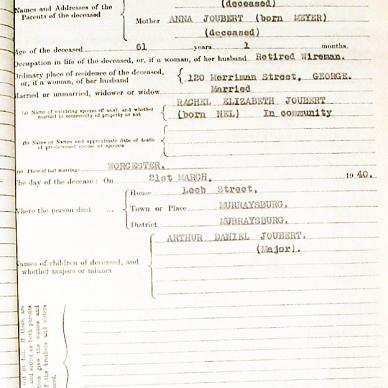 (deceased)
Names and Addresses of the
Parents of the deceased
Mother ANNA JOUBERT (born MEYER)
(deceased)
Age of the deceased 61 years 1 months.
Occupation in life of the deceased, or, if a woman, of her husband Retired Wireman.
Ordinary place of residence of the deceased,
or, if a woman, of her husband 120 Merriman Street, GEORGE.
Married or unmarried, widower or widow Married
(a) Name of surviving spouse (if any), and whether
married in community of property or not
RACHEL ELIZABETH JOUBERT
(born NEL) In community
(b) Name or Names and approximate date of death
of pre-deceased spouse or spouses
(c) Place of last marriage WORCESTER.
The day of the decease: On 21st MARCH, 1940.
Where the person died ...
House Loeb Street,
Town or Place MURRAYSBURG.
District MURRAYSBURG.
Names of children of deceased, and
whether majors or minors
ARTHUR DANIEL JOUBERT.
(Major).
in full. If there are
and either or both parents
give the names and
of the brothers and sisters
deceased.